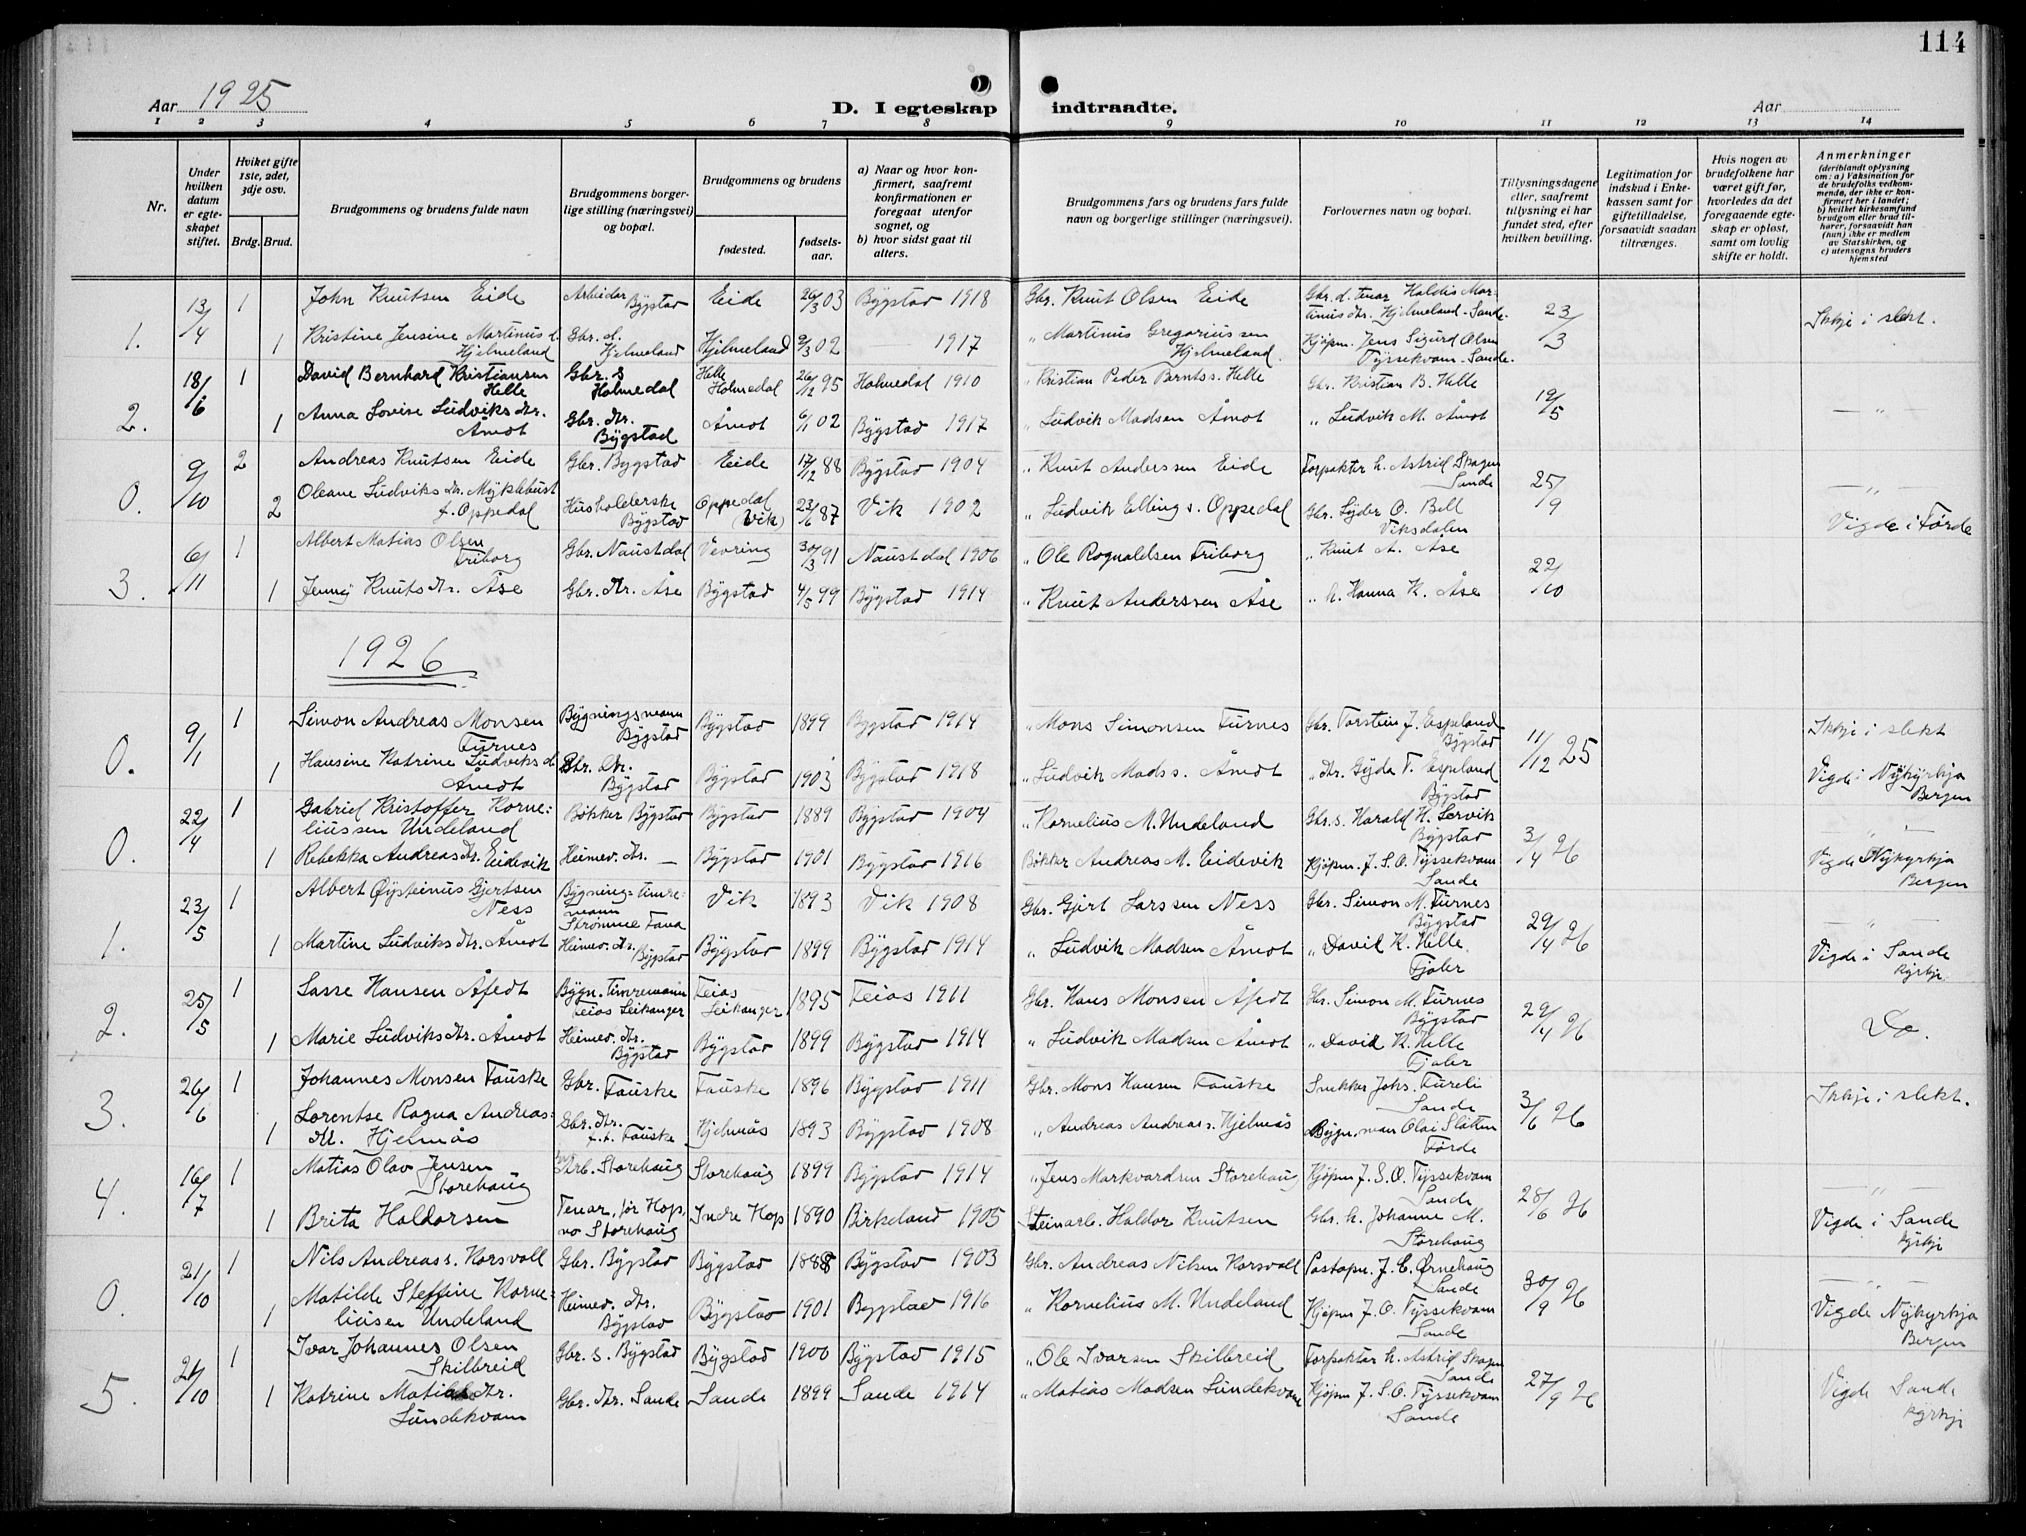 114
Aar 1925
D. I egteskap indtraadte.
Aar
1 2 3 4 5 6 7 8 9 10 11 12 13 14
Nr.
Under hvilken datum er egteskapet stiftet.
Hviket gifte 1ste, 2det, 3dje osv.
Brdg. Brud.
Brudgommens og brudens fulde navn
Brudgommens borgerlige stilling (næringsvei) og bopæl.
Brudgommens og brudens
fødested.
fødselsaar.
a) Naar og hvor konfirmert, saafremt konfirmationen er foregaat utenfor sognet, og
b) hvor sidst gaat til alters.
Brudgommens fars og brudens fars fulde navn og borgerlige stillinger (næringsvei).
Forlovernes navn og bopæl.
Tillysningsdagene eller, saafremt tillysning ei har fundet sted, efter hvilken bevilling.
Legitimation for indskud i Enkekassen samt for giftetilladelse, forsaavidt saadan tiltrænges.
Hvis nogen av brudefolkene har været gift før, hvorledes da det foregaaende egteskap er opløst, samt om lovlig skifte er holdt.
Anmerkninger (deriblandt oplysning om: a) Vaksination for de brudefolks vedkommende, der ikke er konfirmert her i landet; b) hvilket kirkesamfund brudgom eller brud tilhører, forsaavidt han (hun) ikke er medlem av Statskirken, og c) utensogns bruders hjemsted
1. 13/4 1 John Knutsen Eide Arbeider Bygstad Eide 26/3 03 Bygstad 1918 Gbr. Knut Olsen Eide Gbr. d. tenar Haldis Martinus dtr. Hjelmeland - Sande. 23/3 Ikkje i slekt.
1 Kristine Jensine Martinus d. Hjelmeland Gbr. d. Hjelmeland Hjelmeland 9/3 02 1917 " Martinus Gregoriussen Hjelmeland. Kjøpm. Jens Sigurd Olsen Tyssekvam - Sande.
2. 18/6 1 David Bernhard Kristiansen Helle Gbr. s Holmedal Helle Holmedal 26/12 95 Holmedal 1910 " Kristian Peder Bernts s. Helle Gbr. Kristian B. Helle 19/5 — " —
1 Anna Lovise Ludviks dtr. Åmot Gbr. dtr. Bygstad Åmot 6/1 02 Bygstad 1917 " Ludvik Madsen Åmot " Ludvik M. Åmot
0. 9/10 2 Andreas Knutsen Eide Gbr. Bygstad Eide 17/12 88 Bygstad 1904 " Knut Anderssen Eide Forpakter h. Astrid Skagen Sande 25/9 — " —
2 Oleane Ludviks dtr. Myklebust f. Oppedal Husholderske Bygstad Oppedal (Vik) 23/6 87 Vik 1902 " Ludvik Ellings s. Oppedal Gbr. Lyder O. Bell Viksdalen Vigde i Førde
3. 6/11 1 Albert Matias Olsen Friborg Gbr. Naustdal Vevring 30/3 91 Naustdal 1906 " Ole Rognaldsen Friborg " Knut A. Åse 22/10
1 Jenny Knuts dtr. Åse Gbr. dtr. Åse Bygstad 4/5 99 Bygstad 1914 " Knut Anderssen Åse " h. Hanna K. Åse
1926
0. 9/1 1 Simon Andreas Monsen Furnes Bygningsmann Bygstad Bygstad 1899 Bygstad 1914 " Mons Simonsen Furnes Gbr. Torstein J. Espeland Bygstad 11/12 25 Ikkje i slekt
1 Hansine Katrine Ludviks d. Åmot Gbr. dtr. Bygstad Bygstad 1903 Bygstad 1918 " Ludvik Mads s. Åmot " dtr. Gyda T. Espeland Bygstad Vigde i Nykyrkja Bergen
0. 22/4 1 Gabriel Kristoffer Korneliussen Undeland Bøkker Bygstad Bygstad 1889 Bygstad 1904 " Kornelius M. Undeland Gbr. s. Harald H. Lervik Bygstad 3/4 26 — " —
1 Rebekka Andreas dtr. Eidevik Heimev. dtr. — Bygstad 1901 Bygstad 1916 Bøkker Andreas M. Eidevik Kjøpm. J. S. O. Tyssekvam Sande Vigde Nykyrkja Bergen
1. 23/5 1 Albert Øysteinus Gjertsen Ness Bygning- timremann Strømme Fana Vik 1893 Vik 1908 Gbr. Gjert Larssen Ness Gbr. Simon M. Furnes Bygstad 29/4 26 — " —
1 Martine Ludviks dtr. Åmot Heimev. dtr. Bygstad Bygstad 1899 Bygstad 1914 " Ludvik Madsen Åmot " David K. Helle Fjaler Vigde i Sande kyrkje
2. 25/5 1 Lasse Hansen Åfedt Bygn. Timremann Feios Leikanger Feios Leikanger 1895 Feios 1911 Gbr. Hans Monsen Åfedt Gbr. Simon M. Furnes Bygstad 29/4 26 Do.
1 Marie Ludviks dtr. Åmot Heimev. dtr. Bygstad Bygstad 1899 Bygstad 1914 " Ludvik Madsen Åmot " David K. Helle Fjaler
3. 26/6 1 Johannes Monsen Fauske Gbr. Fauske Fauske 1896 Bygstad 1911 Gbr. Mons Hansen Fauske Snekker Johs. Fureli Sande 3/6 26 Ikkje i slekt.
1 Lorentse Ragna Andreas dtr. Hjelmås Gbr. dtr. f.t. Fauske Hjelmås 1893 Bygstad 1908 " Andreas Andreas s. Hjelmås Bygn. man Olai Slåtten Førde
4. 16/7 1 Matias Olav Jensen Storehaug Arb. Storehaug Storehaug 1899 Bygstad 1914 " Jens Markvardsen Storehaug Kjøpm. J. S. O. Tyssekvam Sande 28/6 26 — " —
1 Brita Haldorsen Tenar, før Hop, no Storehaug Indre Hop 1890 Birkeland 1905 Steinarb. Haldor Knutsen Gbr. h. Johanne M. Storehaug Vigde i Sande kyrkje
0. 21/10 1 Nils Andreas s. Korsvoll Gbr. Bygstad Bygstad 1888 Bygstad 1903 Gbr. Andreas Nilsen Korsvoll Postopn. J. C. Ørnehaug Sande 30/9 26 — " —
1 Matilde Steffine Korneliusen Undeland Heimev. dtr. Bygstad Bygstad 1901 Bygstad 1916 " Kornelius M. Undeland Kjøpm J. O. Tyssekvam Sande Vigde Nykyrkja Bergen
5. 21/10 1 Ivar Johannes Olsen Skilbreid Gbr. s. Bygstad Bygstad 1900 Bygstad 1915 " Ole Ivarsen Skilbreid Forpaktar h. Astrid Skagen Sande 27/9 26
1 Katrine Matias dtr. Sundekvam Gbr. dtr. Sande Sande 1899 Sande 1914 " Matias Madsen Sundekvam Kjøpm J. S. O. Tyssekvam Sande Vigde Sande kyrkje